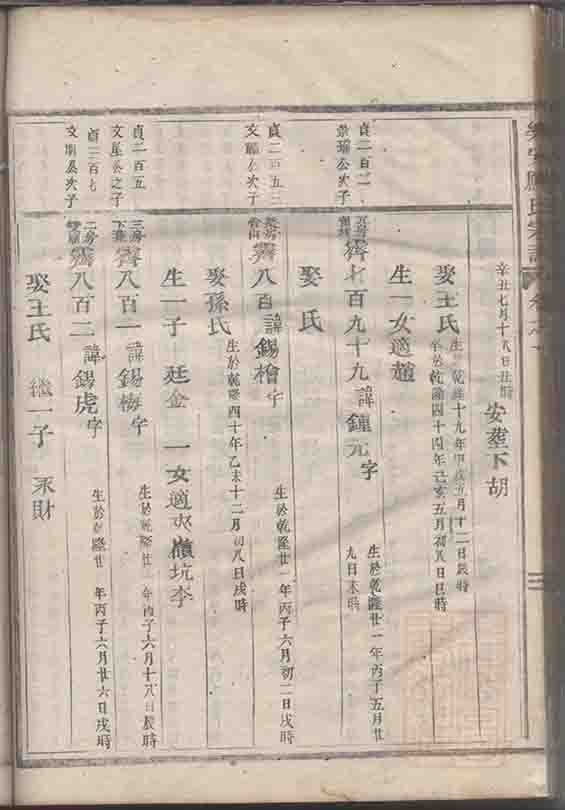 氏宗譜
辛丑七月十八日丑時
安塟下胡
娶王氏
生於乾隆十九年甲戌五月十二日辰時
卒於乾隆四十四年己亥五月初八日巳時
生一女適趙
貞二百二
景瑞公次子
霽七百九十九
諱鐘元字
生於乾隆廿一年丙子五月廿
九日未時
娶 氏
貞二百五三
文顯公次子
霽八百
諱錫檜字
生於乾隆廿一年丙子六月初二日戌時
娶孫氏
生於乾隆四十年乙未十二月初八日戌時
生一子 廷金 一女適夾嶺坑李
貞二百五
文星公之子
三房
霽八百一
諱錫梅字
生於乾隆廿一年丙子六月十八日辰時
貞二百七
文明公次子
二房
霽八百二
諱錫虎字
生於乾隆廿一年丙子六月廿六日戌時
娶王氏 繼一子 永財